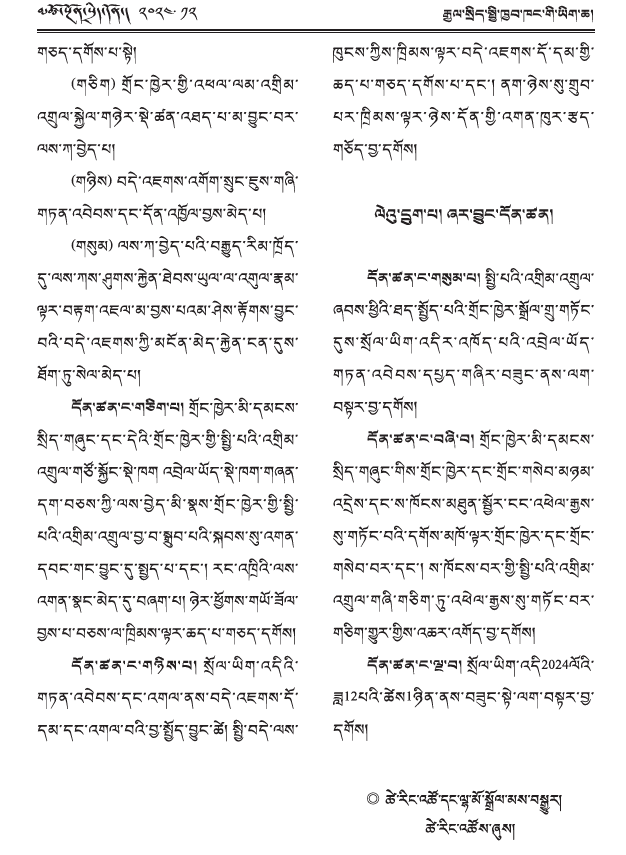 ༄༅།མཚོ་སྔོན་སྲིད་གཞུང་གི་གསལ་བསྒྲགས།། ༢༠༢༤·༡༢
རྒྱལ་སྲིད་སྤྱི་ཁྱབ་ཁང་གི་ཡིག་ཆ།
གཅད་དགོས་པ་སྟེ།
(གཅིག) གྲོང་ཁྱེར་གྱི་འཕལ་ལམ་འགྲིམ་
འགྲུལ་སྐྱེལ་གཉེར་སྡེ་ཚན་འཐད་པ་མ་བྱུང་བར་
ལས་ཀ་བྱེད་པ།
(གཉིས) བདེ་འཇགས་འགོག་སྲུང་ཇུས་གཞི་
གཏན་འབེབས་དང་དོན་འཁྱོལ་བྱས་མེད་པ།
(གསུམ) ལས་ཀ་བྱེད་པའི་བརྒྱུད་རིམ་ཁྲོད་
དུ་ལས་ཀས་ཤུགས་རྐྱེན་ཐེབས་ཡུལ་ལ་འགུལ་རྣམ་
ལྟར་བརྟག་འཇལ་མ་བྱས་པའམ་ཤེས་རྟོགས་བྱུང་
བའི་བདེ་འཇགས་ཀྱི་མངོན་མེད་རྐྱེན་ངན་དུས་
ཐོག་ཏུ་སེལ་མེད་པ།
དོན་ཚན་ང་གཅིག་པ། གྲོང་ཁྱེར་མི་དམངས་
སྲིད་གཞུང་དང་དེའི་གྲོང་ཁྱེར་གྱི་སྤྱི་པའི་འགྲིམ་
འགྲུལ་གཙོ་སྐྱོང་སྡེ་ཁག འབྲེལ་ཡོད་སྡེ་ཁག་གཞན་
དག་བཅས་ཀྱི་ལས་བྱེད་མི་སྣས་གྲོང་ཁྱེར་གྱི་སྤྱི་
པའི་འགྲིམ་འགྲུལ་བྱ་བ་སྒྲུབ་པའི་སྐབས་སུ་འགན་
དབང་གང་བྱུང་དུ་སྤྱད་པ་དང་། རང་འཁྲིའི་ལས་
འགན་སྣང་མེད་དུ་བཞག་པ། ཉེར་ཕྱོགས་གཡོ་ཟོལ་
བྱས་པ་བཅས་ལ་ཁྲིམས་ལྟར་ཆད་པ་གཅད་དགོས།
དོན་ཚན་ང་གཉིས་པ། སྲོལ་ཡིག་འདིའི་
གཏན་འབེབས་དང་འགལ་ནས་བདེ་འཇགས་དོ་
དམ་དང་འགལ་བའི་བྱ་སྤྱོད་བྱུང་ཚེ། སྤྱི་བདེ་ལས་
ཁུངས་ཀྱིས་ཁྲིམས་ལྟར་བདེ་འཇགས་དོ་དམ་གྱི་
ཆད་པ་གཅད་དགོས་པ་དང་། ནག་ཉེས་སུ་གྲུབ་
པར་ཁྲིམས་ལྟར་ཉེས་དོན་གྱི་འགན་ཁུར་རྩད་
གཅོད་བྱ་དགོས།
ལེའུ་དྲུག་པ། ཞར་བྱུང་དོན་ཚན།
དོན་ཚན་ང་གསུམ་པ། སྤྱི་པའི་འགྲིམ་འགྲུལ་
ཞབས་ཕྱིའི་ཐད་སྤྱོད་པའི་གྲོང་ཁྱེར་སྒྲོལ་གྲུ་གཏོང་
དུས་སྲོལ་ཡིག་འདིར་འཁོད་པའི་འབྲེལ་ཡོད་
གཏན་འབེབས་དཔྱད་གཞིར་བཟུང་ནས་ལག་
བསྟར་བྱ་དགོས།
དོན་ཚན་ང་བཞི་བ། གྲོང་ཁྱེར་མི་དམངས་
སྲིད་གཞུང་གིས་གྲོང་ཁྱེར་དང་གྲོང་གསེབ་མཉམ་
འདྲེས་དང་ས་ཁོངས་མཐུན་སྦྱོར་ངང་འཕེལ་རྒྱས་
སུ་གཏོང་བའི་དགོས་མཁོ་ལྟར་གྲོང་ཁྱེར་དང་གྲོང་
གསེབ་བར་དང་། ས་ཁོངས་བར་གྱི་སྤྱི་པའི་འགྲིམ་
འགྲུལ་གཞི་གཅིག་ཏུ་འཕེལ་རྒྱས་སུ་གཏོང་བར་
གཅིག་གྱུར་གྱིས་འཆར་འགོད་བྱ་དགོས།
དོན་ཚན་ང་ལྔ་བ། སྲོལ་ཡིག་འདི་2024ལོའི་
ཟླ12པའི་ཚེས1ཉིན་ནས་བཟུང་སྟེ་ལག་བསྟར་བྱ་
དགོས།
◎ ཚེ་རིང་འཚོ་དང་ལྷ་མོ་སྒྲོལ་མས་བསྒྱུར།
ཚེ་རིང་འཚོས་ཞུས།